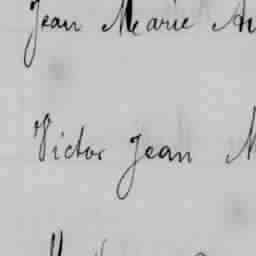 Jean Marie
Victor Jean